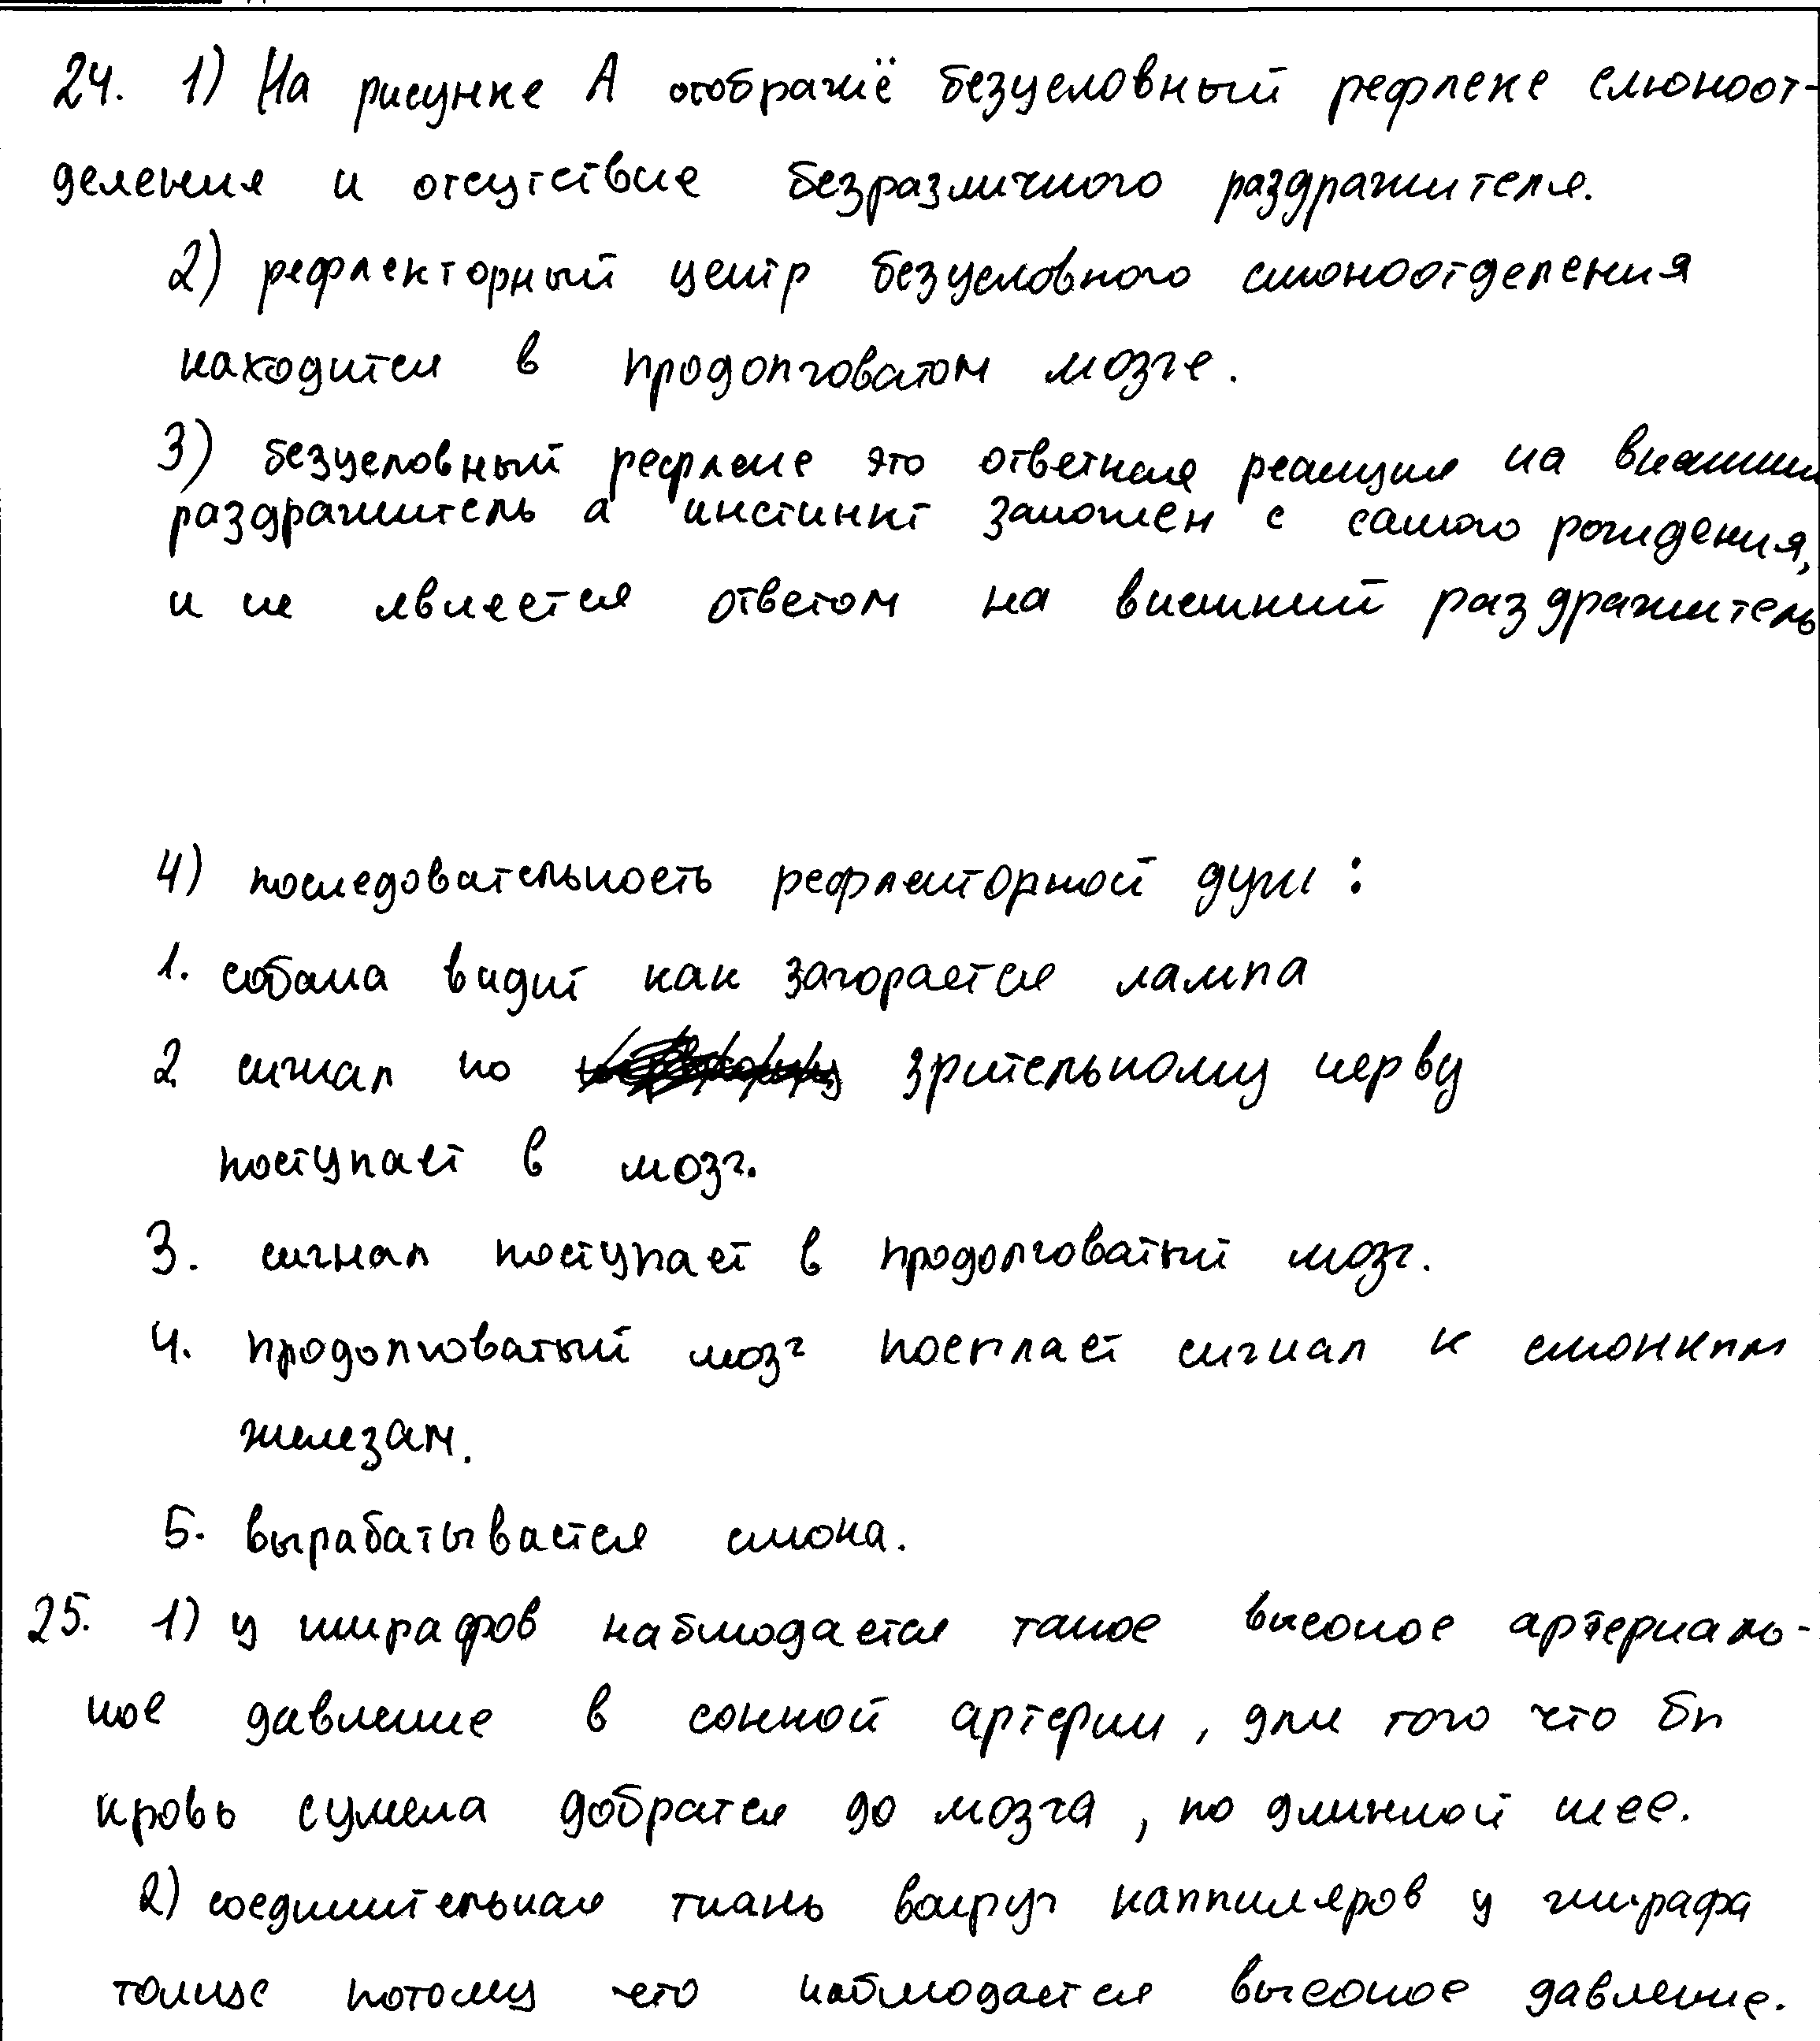 24. 1) На рисунке А отображё безусловный рефлекс слюноот-
деления и отсутствие безразличного раздражителя.
2) рефлекторный центр безусловного слюноотделения
находится в продолговатом мозге.
3) безусловный рефлекс это ответная реакция на внешний
раздражитель а инстинкт заложен с самого рождения,
и не является ответом на внешний раздражитель
4) последовательность рефлекторной дуги:
1. собака видит как загорается лампа
2 сигнал по зрительному нерву
поступает в мозг.
3. сигнал поступает в продолговатый мозг.
4. продолговатый мозг посылает сигнал к слюнным
железам.
5. вырабатывается слюна.
25. 1) у жирафов наблюдается такое высокое артериаль-
ное давление в сонной артерии, для того что бы
кровь сумела добратся до мозга, по длинной шее.
2) соединительная ткань вокруг каппиляров у жирафа
толще потому что наблюдается высокое давление.